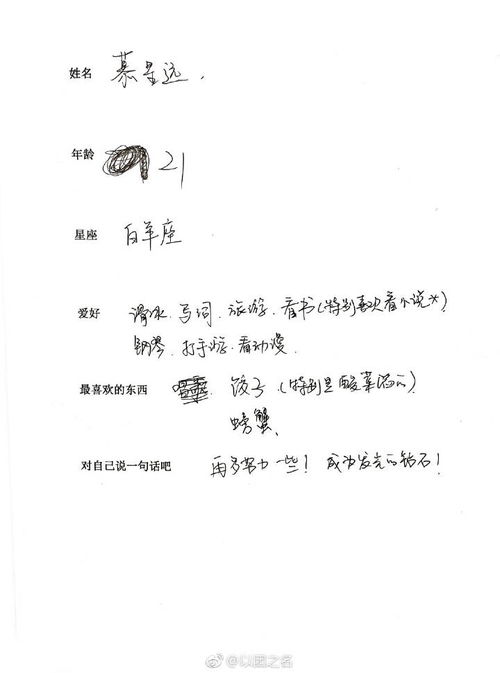 姓名 慕星远.
年龄 21
星座 白羊座
爱好 滑冰.写词.旅游.看书(特别喜欢看小说*)
钢琴.打手游.看动漫.
最喜欢的东西 饺子(特别是酸菜馅的)
螃蟹
对自己说一句话吧 再多努力一些!成为发光的钻石!
@以团之名